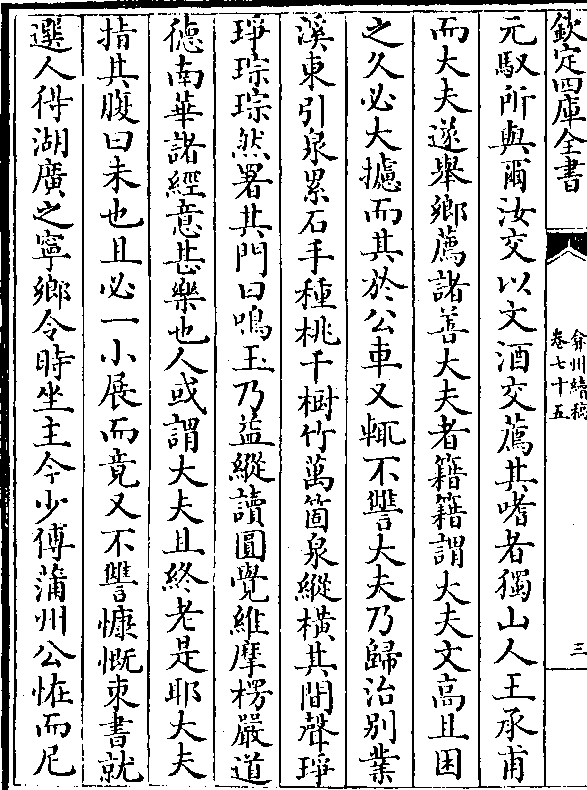 欽定四庫全書
弇州續稿
卷七十五
三
元馭所與爾汝交以文酒交薦其嗜者獨山人王承甫
而大夫遂舉鄉薦諸善大夫者籍籍謂大夫文高且困
之久必大攄而其於公車又輒不讐大夫乃歸治別業
溪東引泉累石手種桃千樹竹萬箇泉縱橫其間聲琤
琤琮琮然署其門曰鳴玉乃益縱讀圓覺維摩楞嚴道
徳南華諸經意甚樂也人或謂大夫且終老是耶大夫
指其腹曰未也且必一小展而竟又不讐慷慨束書就
選人得湖廣之寧鄉令時坐主今少傅蒲州公恠而尼